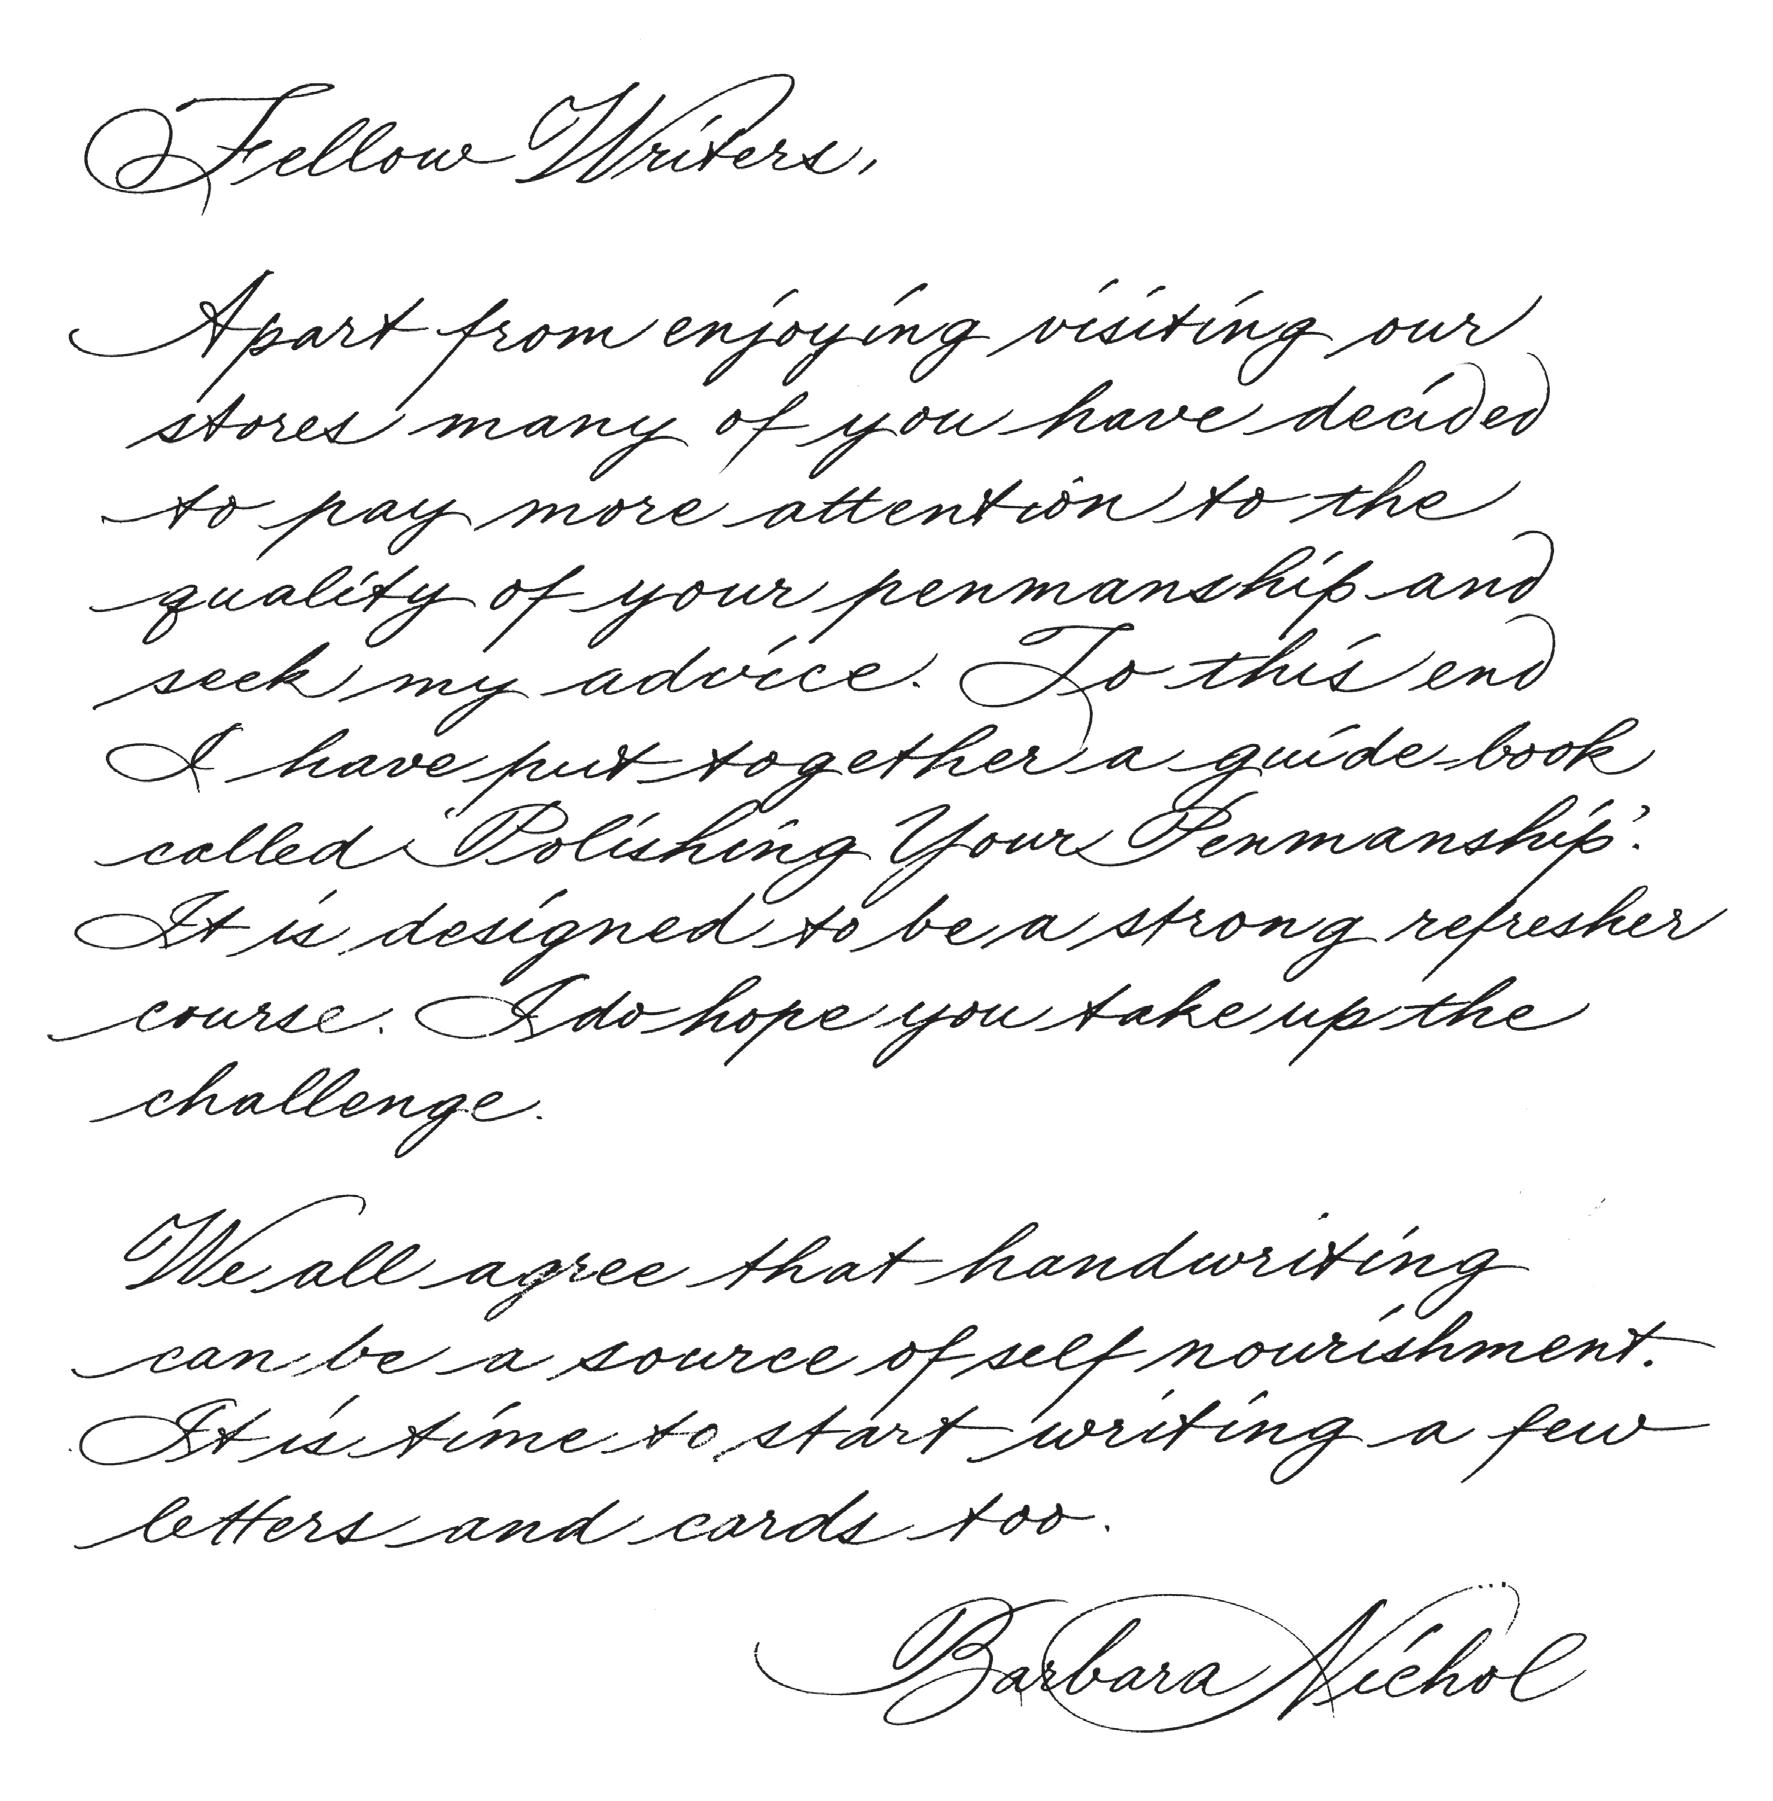 Fellow Writers,
Apart from enjoying visiting our
stores many of you have decided
to pay more attention to the
quality of your penmanship and
seek my advice. To this end
I have put together a guide-book
called 'Polishing Your Penmanship'.
It is designed to be a strong refresher
course. I do hope you take up the
challenge.
We all agree that handwriting
can be a source of self nourishment.
It is time to start writing a few
letters and cards too.
Barbara Nichol